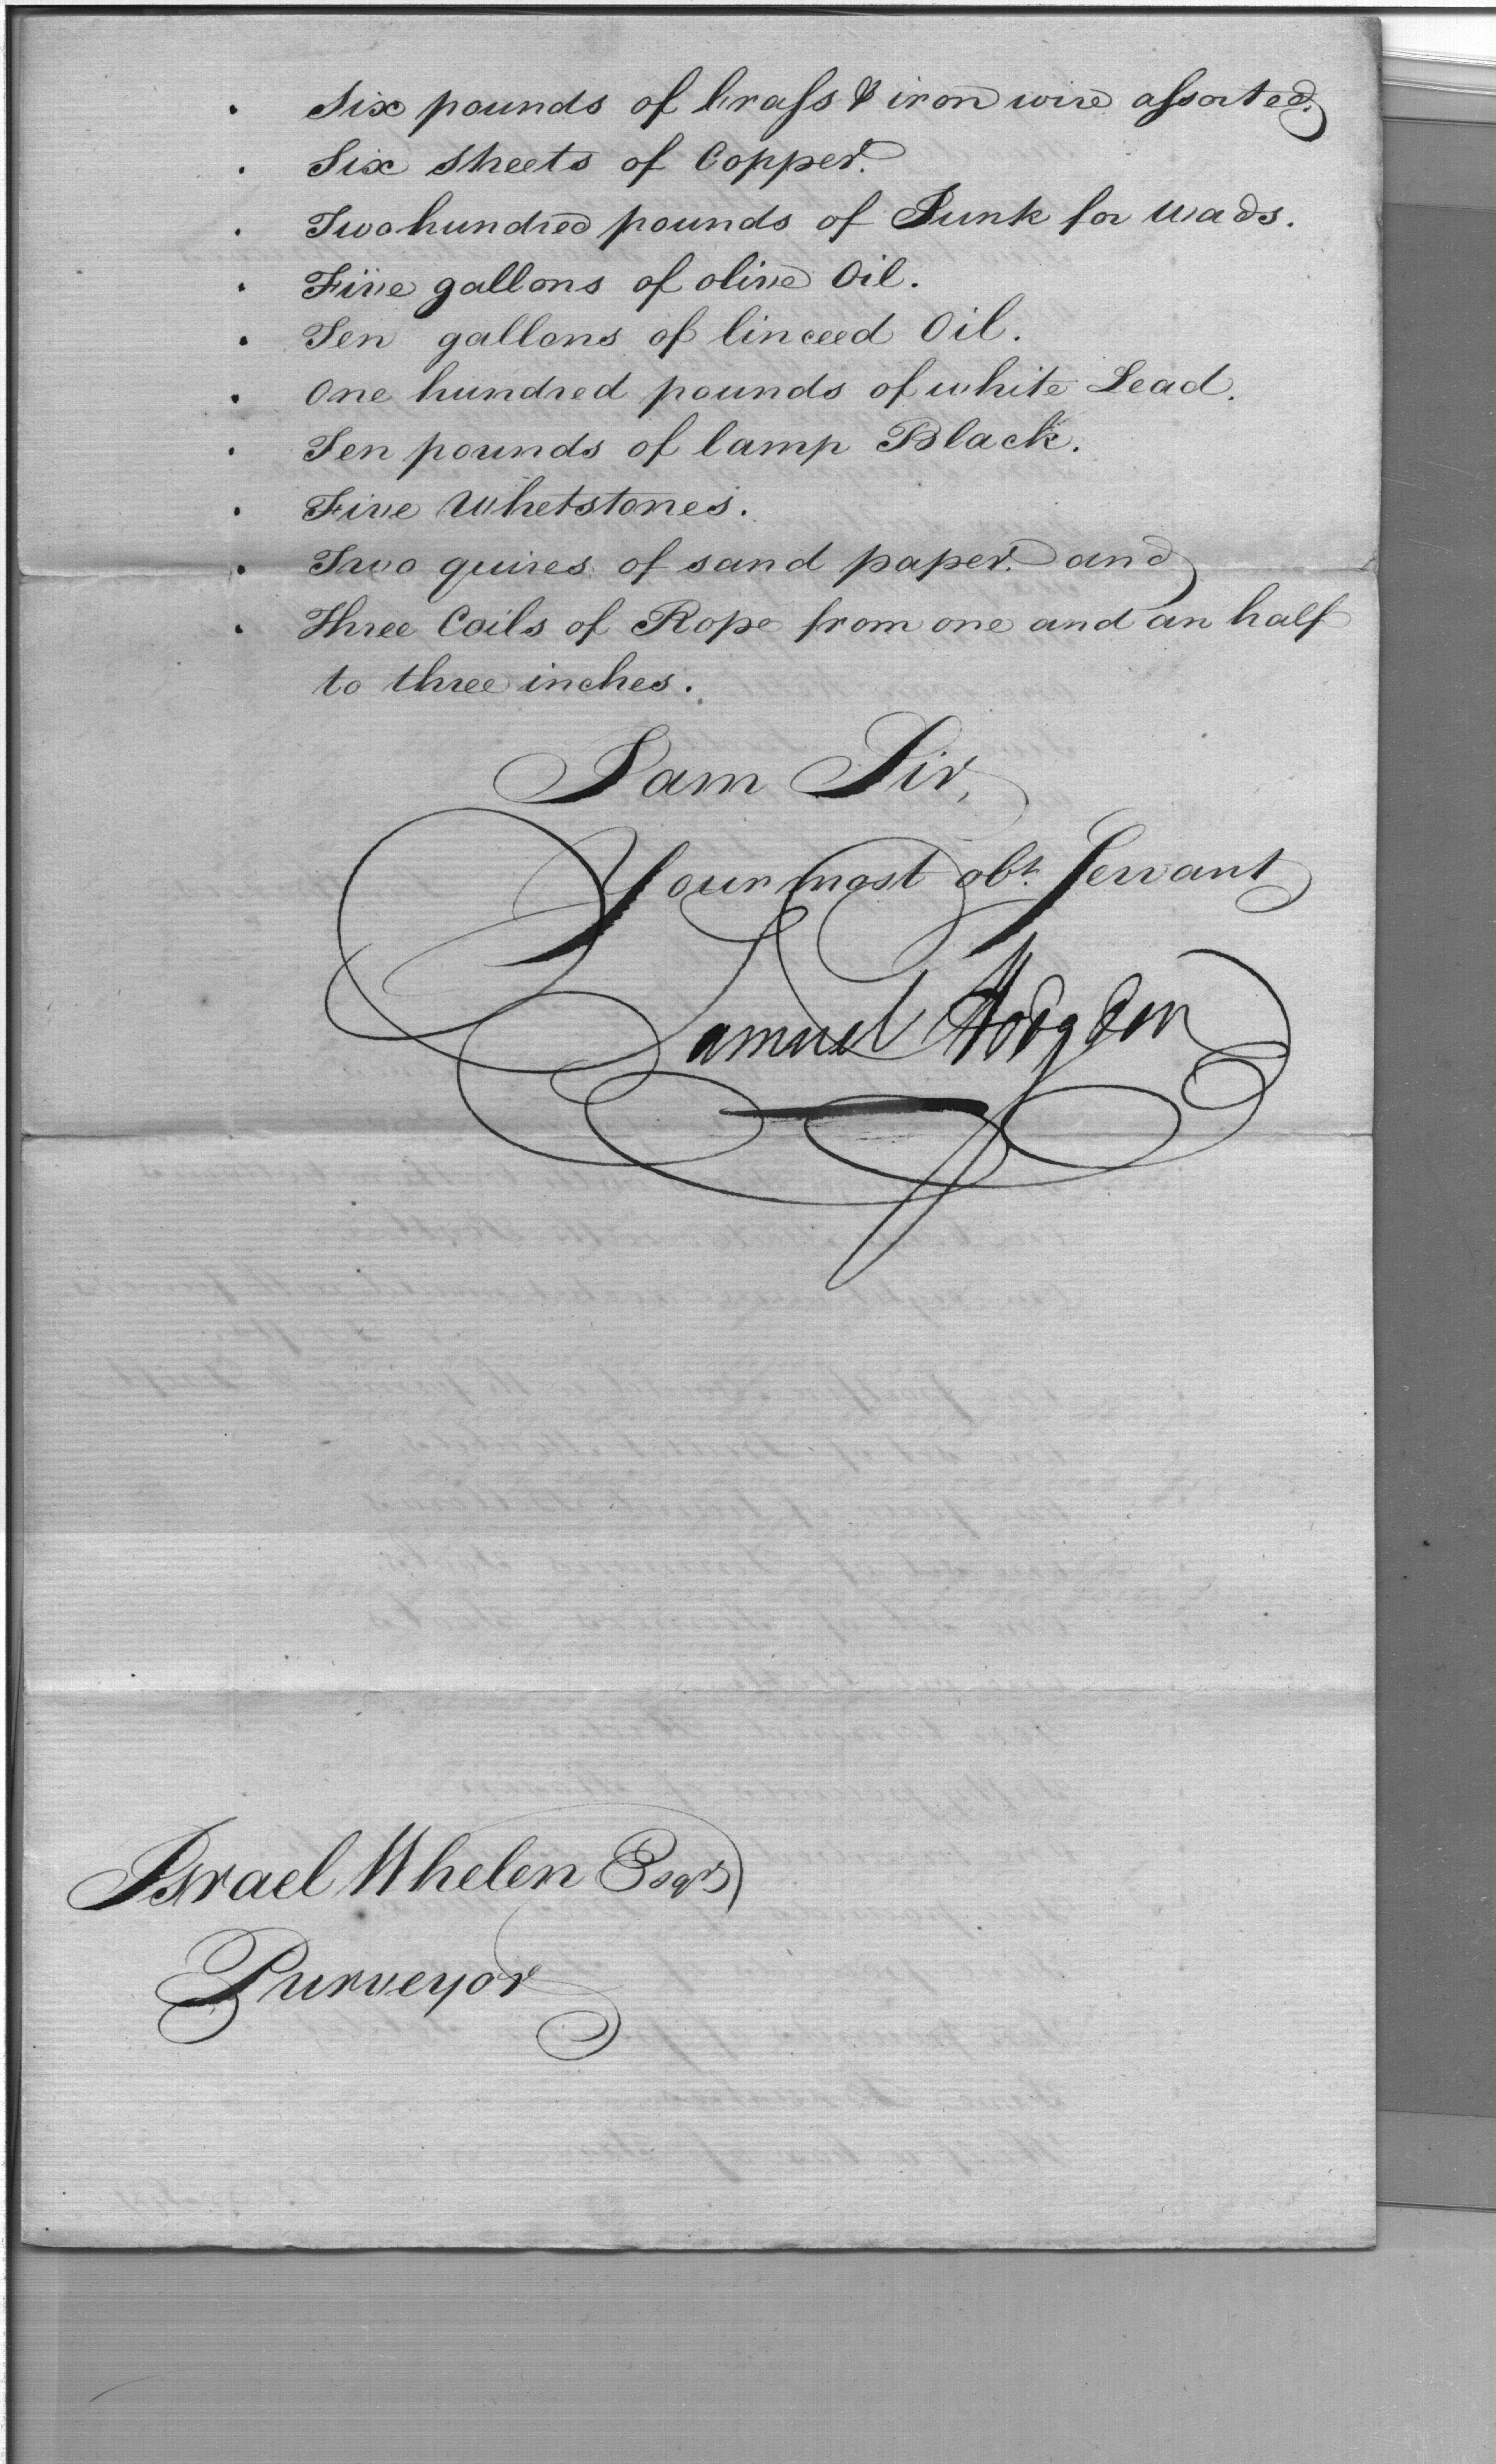 . Six pounds of brass & iron wire assorted.
. Six Sheets of Copper.
. Two hundred pounds of Junk for Wads.
. Five gallons of olive Oil.
. Ten gallons of linceed Oil.
. One hundred pounds of white Lead.
. Ten pounds of lamp Black.
. Five Whetstones.
. Two quires of sand paper. and
. Three Coils of Rope from one and an half
to three inches.
I am Sir,
Your most obt. Servant
Samuel Hodgdon
Israel Whelen Esqr.
Purveyor